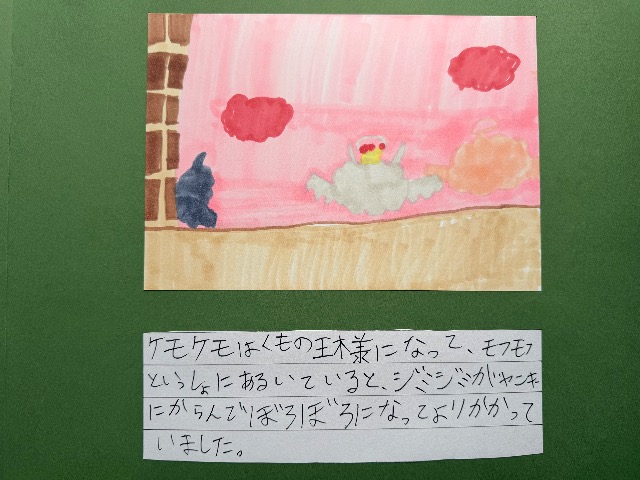 ケモケモはくもの王様になって、モフモフ
といっしょにあるいていると、ジミジミがヤンキー
にからんでぼろぼろになってよりかかって
いました。